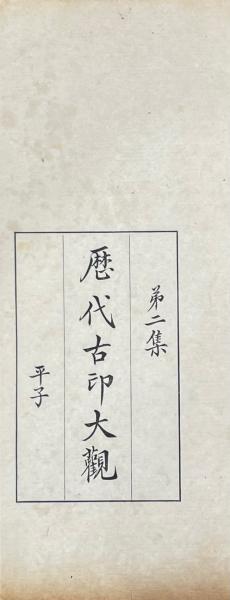 第二集
歷代古印大觀
平子